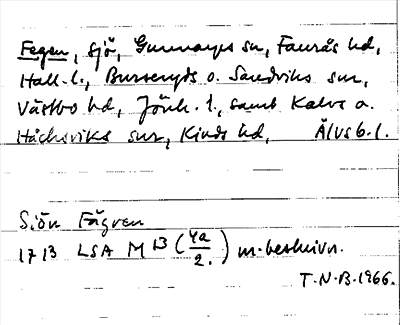 Fegen, sjö, Gunnarps sn, Faurås hd,
Hall. l., Burseryds o. Sandviks snr,
Västbo hd, Jönk. l., samt Kalvs o.
Håcksviks snr, Kinds hd, Älvsb. l.
Siön Fägren
1713 LSA M 13 (4a/2.) m. beskrivn.
T.N.B. 1966.